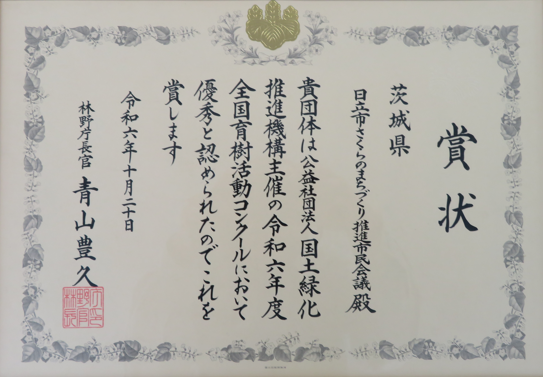 賞状
茨城県
日立市さくらのまちづくり推進市民会議殿
貴団体は公益社団法人国土緑化
推進機構主催の令和六年度
全国育樹活動コンクールにおいて
優秀と認められたのでこれを
賞します
令和六年十月二十日
林野庁長官 青山豊久